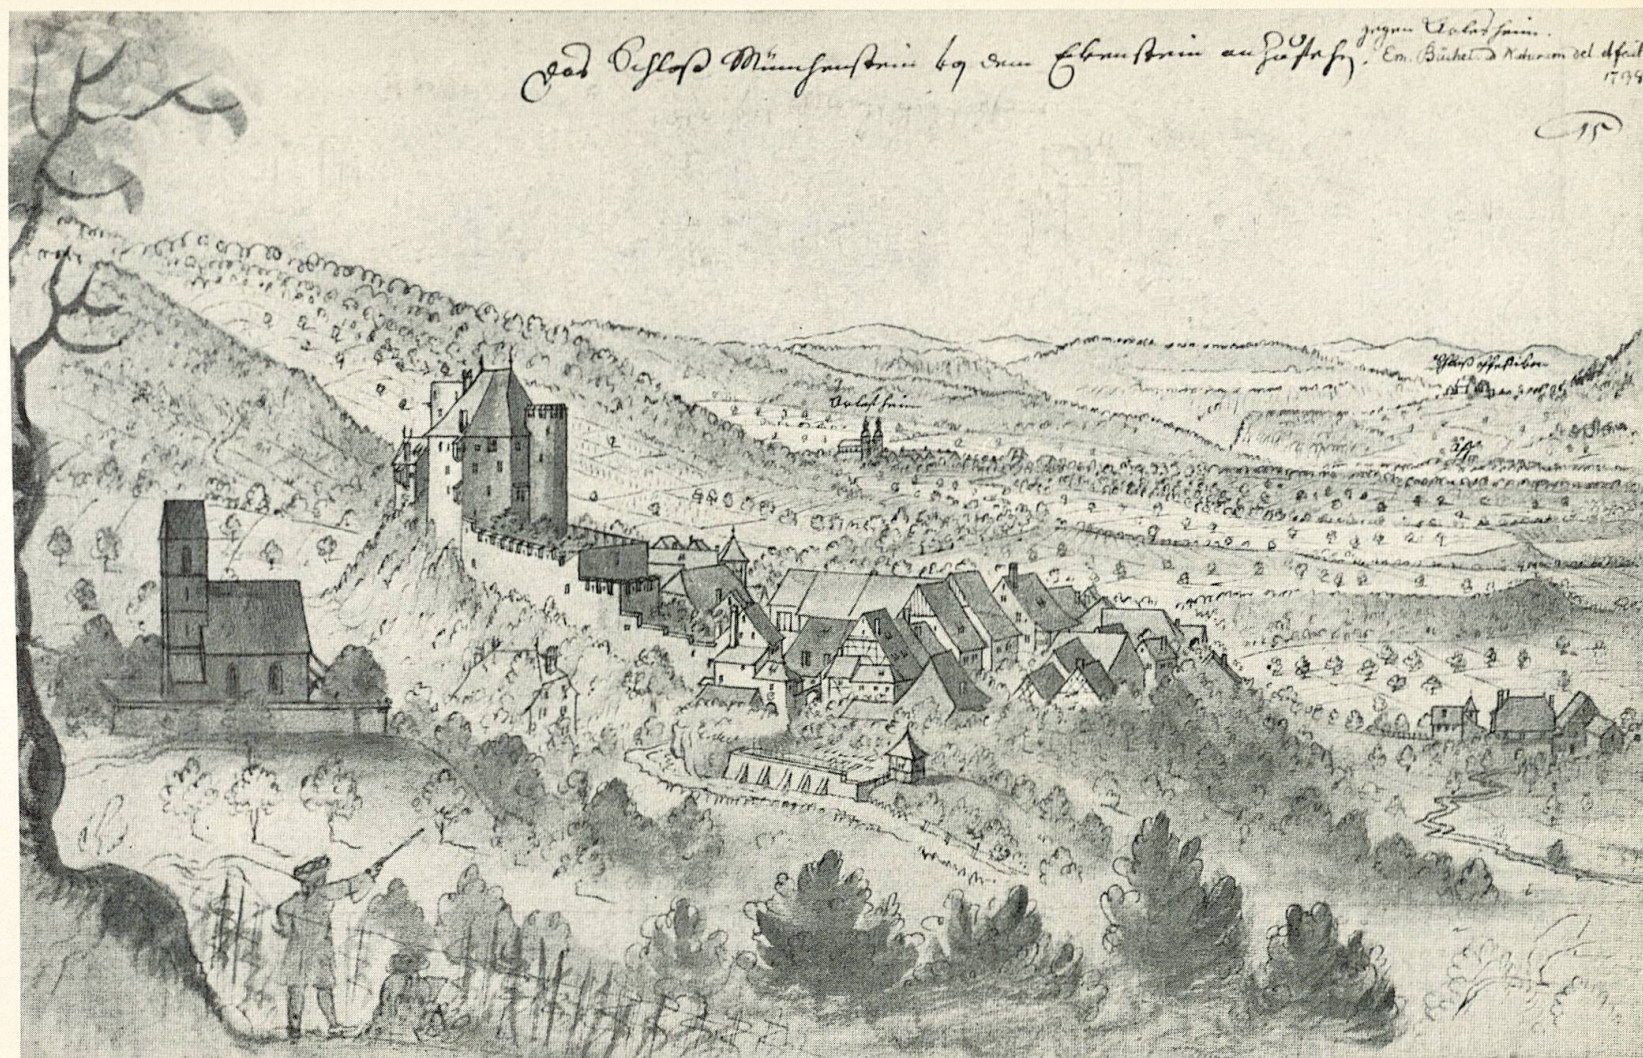 Das Schloß Münchenstein bey dem Ebenstein anzusehen.
gegen Arlesheim.
Em. Büchel ad Naturam del.
15
Arlesheim
Schloß Pfeffingen